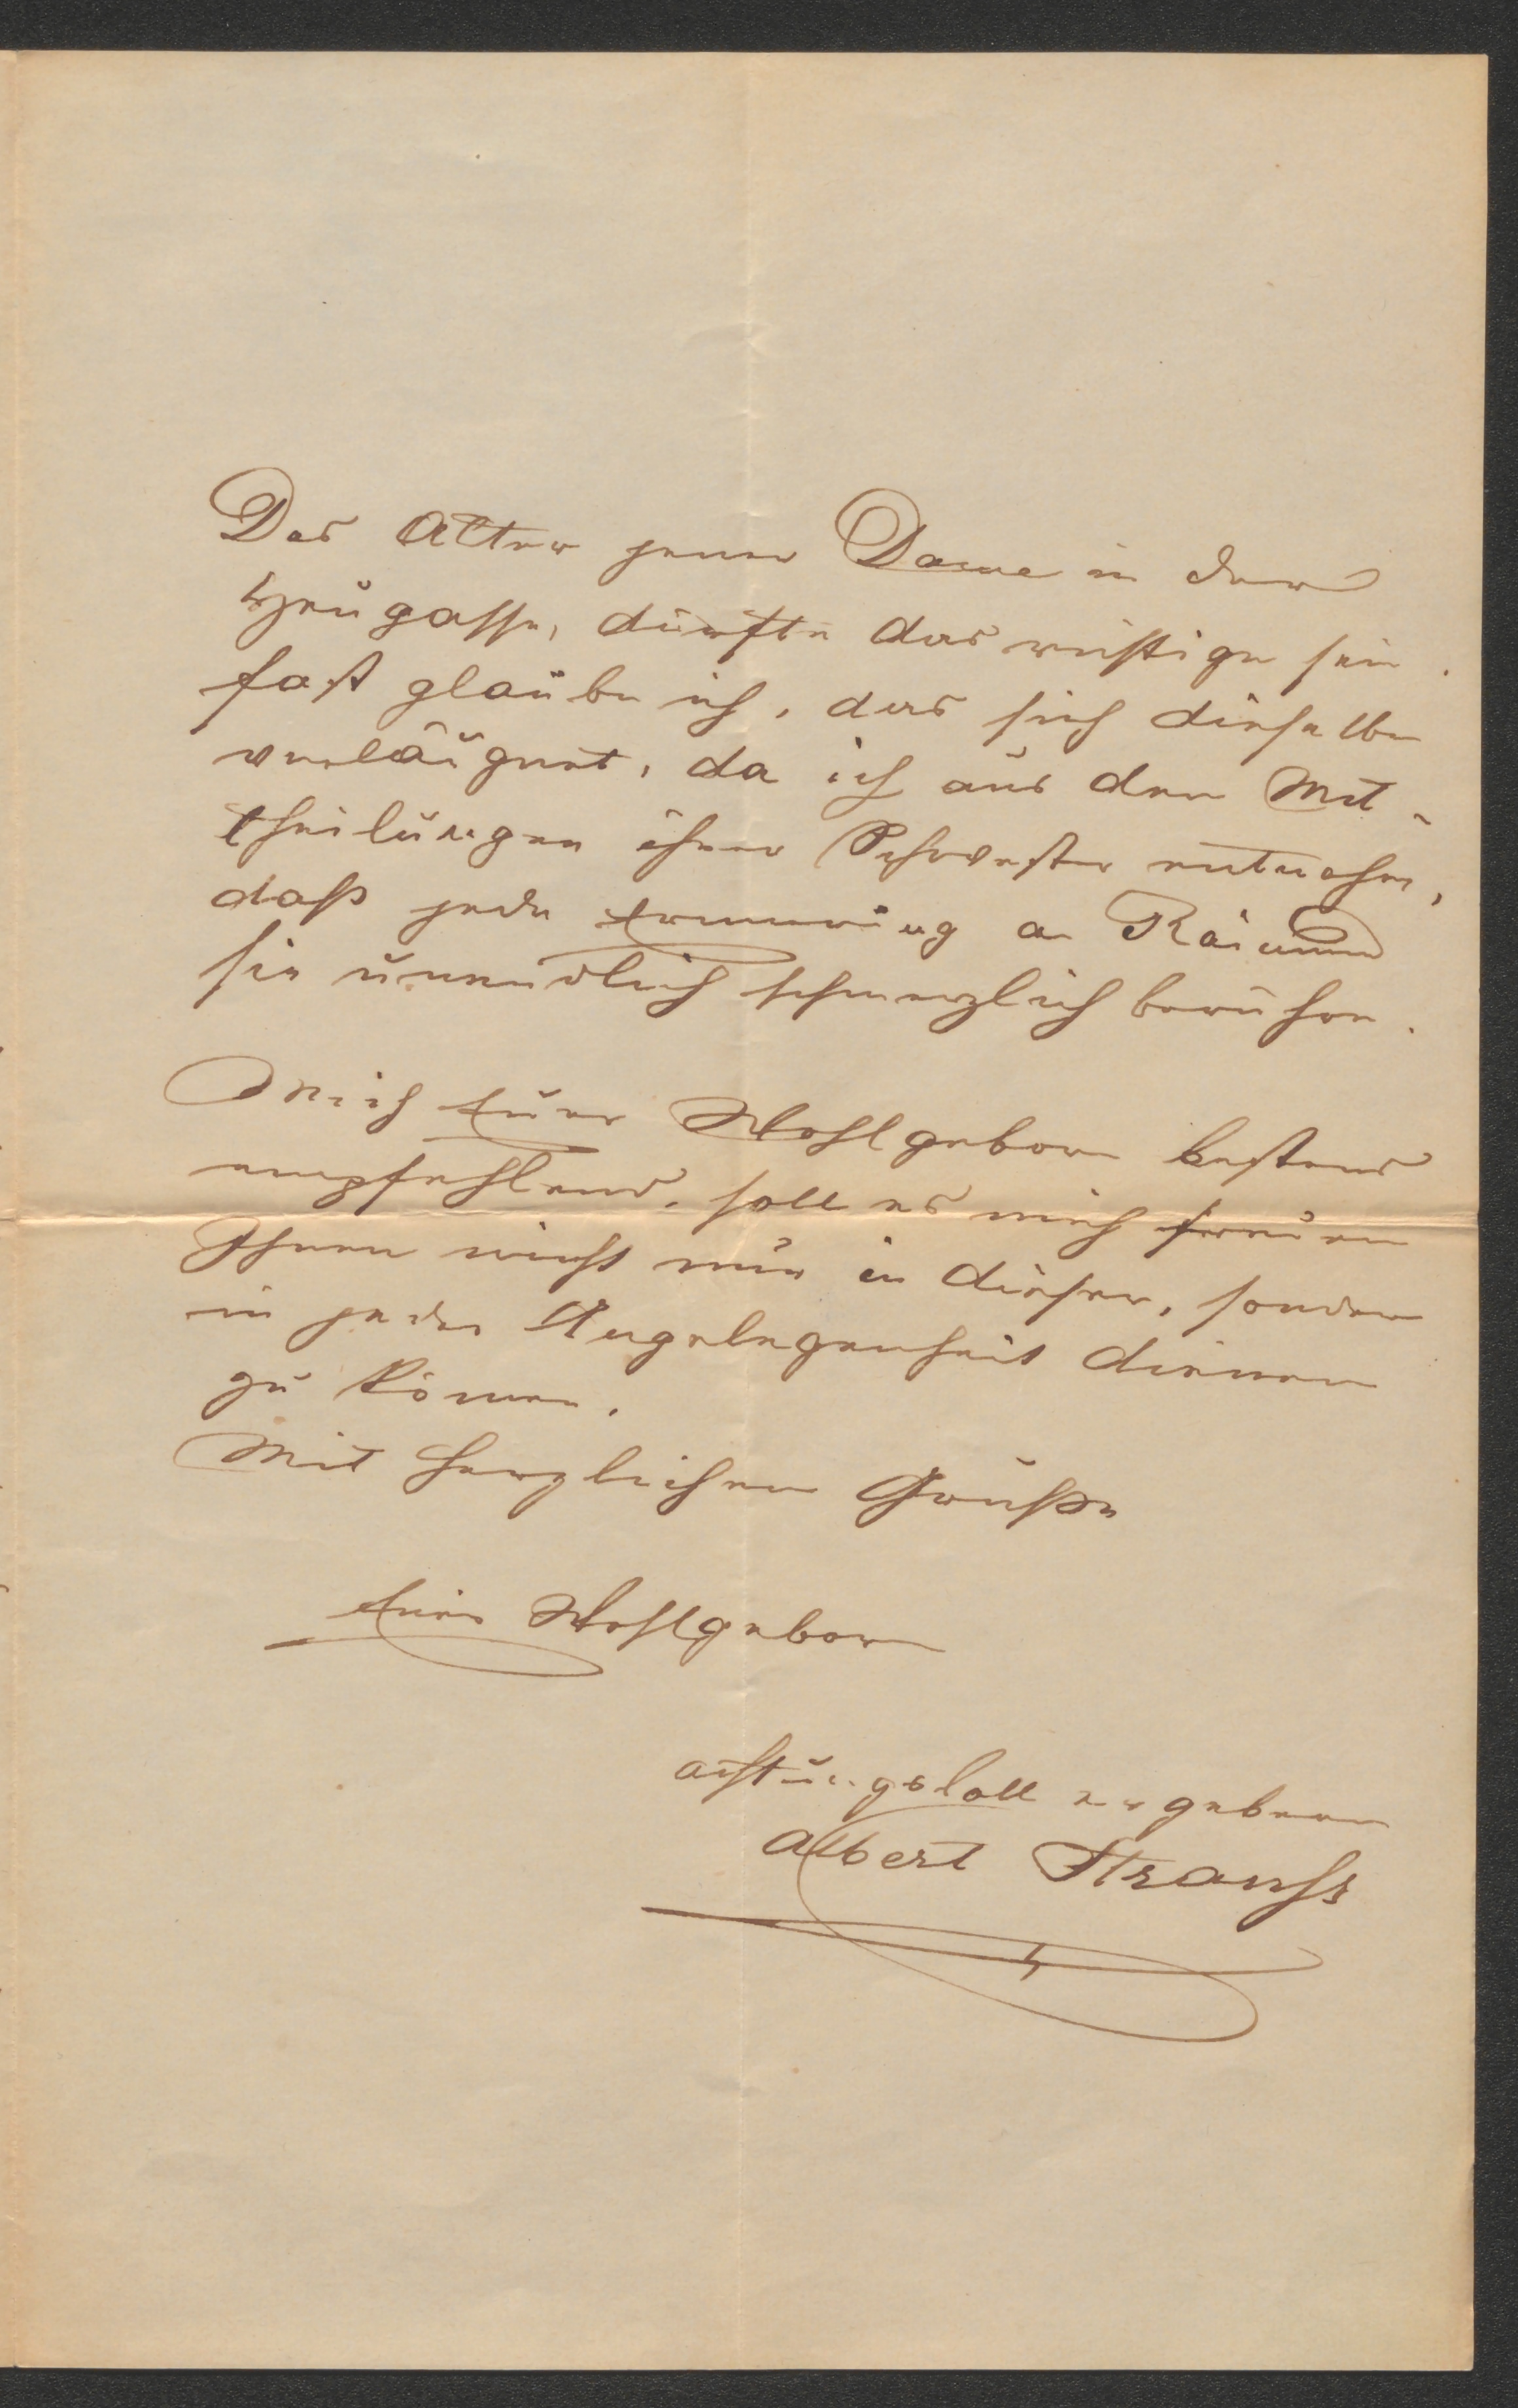 Das Alter jener Dame in der
Heugasse, dürfte das richtige sein.
fast glaube ich, das sich dieselbe
verläugnet, da ich aus den Mit-
theilungen ihrer Schwester entnehm,
daß jede Erinnerung a Raimund
sie unendlich schmerzlich berühre.
Mich Euer Wohlgeborn bestens
empfehlend, soll es mich freuen
Ihnen nicht nur in dieser, sondern
in jeder Angelegenheit dienen
zu könen.
Mit herzlichem Gruße
Euer Wohlgeborn
achtungsvoll ergeben
Albert Strauss